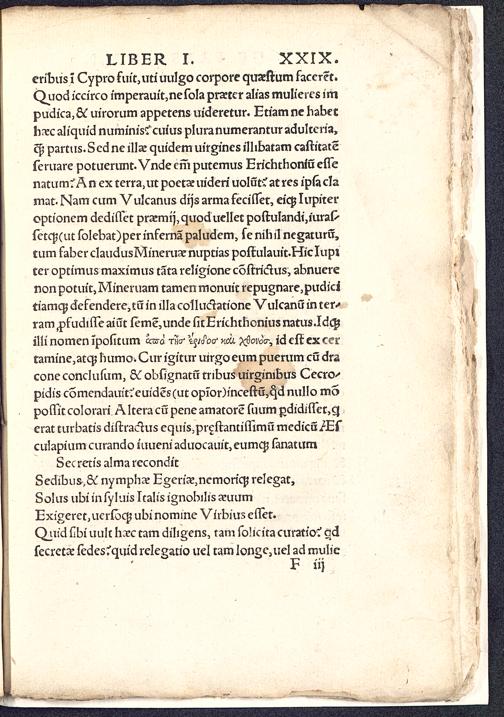 LIBER I. XXIX.
eribus ī Cypro fuit, uti uulgo corpore quæstum facerēt.
Quod iccirco imperauit, ne sola præter alias mulieres im
pudica, & uirorum appetens uideretur. Etiam ne habet
hæc aliquid numinis? cuius plura numerantur adulteria,
q̄ꝫ partus. Sed ne illæ quidem uirgines illibatam castitatē
seruare potuerunt. Vnde em̄ putemus Erichthoniū esse
natum? An ex terra, ut poetæ uideri uolūt? at res ipsa cla
mat. Nam cum Vulcanus dijs arma fecisset, eiqꝫ Iupiter
optionem dedisset præmij, quod uellet postulandi, iuras⸗
setqꝫ (ut solebat) per infernā paludem, se nihil negaturū,
tum faber claudus Mineruæ nuptias postulauit. Hic Iupi
ter optimus maximus tāta religione cōstrictus, abnuere
non potuit, Mineruam tamen monuit repugnare, pudici
tiamqꝫ defendere, tū in illa colluctatione Vulcanū in ter⸗
ram ꝓfudisse aiūt semē, unde sit Erichthonius natus. Idqꝫ
illi nomen īpositum ἀπὸ τῆσ ἔριδοσ καὶ χθονὸσ, id est ex cer
tamine, atqꝫ humo. Cur igitur uirgo eum puerum cū dra
cone conclusum, & obsignatū tribus uirginibus Cecro⸗
pidis cōmendauit? euidēs (ut opior) incestū, qd̄ nullo mō
possit colorari. Altera cū pene amatorē suum ꝑdidisset, q
erat turbatis distractus equis, pręstantissimū medicū Æs
culapium curando iuueni aduocauit, eumqꝫ sanatum
Secretis alma recondit
Sedibus, & nymphæ Egeriæ, nemoriqꝫ relegat,
Solus ubi in syluis Italis ignobilis æuum
Exigeret, uersoqꝫ ubi nomine Virbius esset.
Quid sibi uult hæc tam diligens, tam solicita curatio? qd
secretæ sedes? quid relegatio uel tam longe, uel ad mulie
F iij